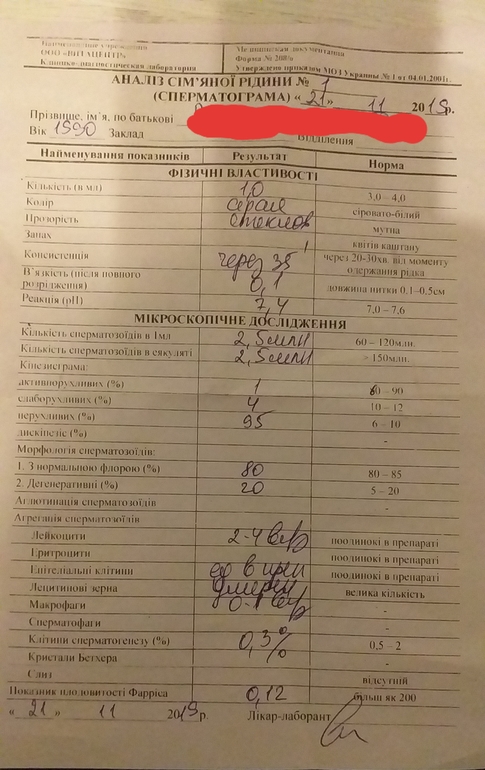 Найменування учреждения Медицинская документация
ООО «ВИТАЦЕНТР» Форма № 208/о
Клинико-диагностическая лаборатория Утверждено приказом МОЗ Украины № 1 от 04.01.2001г.
АНАЛІЗ СІМ'ЯНОЇ РІДИНИ № 1
(СПЕРМАТОГРАМА) «21» 11 2019р.
Прізвище, ім'я, по батькові
Вік 1990 Заклад Відділення
Найменування показників Результат Норма
ФІЗИЧНІ ВЛАСТИВОСТІ
Кількість (в мл) 1,0 3,0 – 4,0
Колір серая сіровато-білий
Прозорість стеклов мутна
Запах квітів каштану
Консистенция через 35' через 20-30хв. від моменту одержання рідка
В'язкість (після повного розрідження) 0,1 довжина нитки 0,1–0,5см
Реакція (рН) 7,4 7,0 – 7,6
МІКРОСКОПІЧНЕ ДОСЛІДЖЕННЯ
Кількість сперматозоїдів в 1мл 2,5млн 60 – 120млн.
Кількість сперматозоїдів в еякуляті 2,5млн > 150млн.
Кінезиграма: -
активнорухливих (%) 1 60 – 90
слаборухливих (%) 4 10 – 12
нерухливих (%) 95 6 – 10
дискінетіс (%) -
Морфологія сперматозоїдів:
1. З нормальною флорою (%) 80 80 – 85
2. Дегенеративні (%) 20 5 – 20
Аглютинація сперматозоїдів -
Агрегація сперматозоїдів -
Лейкоцити 2-4 в п/з поодинокі в препараті
Еритроцити поодинокі в препараті
Епітеліальні клітини ед в преп поодинокі в препараті
Лецитинові зерна умерен велика кількість
Макрофаги 0-1 в п/з -
Сперматофаги -
Клітини сперматогенезу (%) 0,3% 0,5 – 2
Кристали Бетхера -
Слиз відсутній
Показник плодовитості Фарріса 0,12 більш як 200
«21» 11 2019р. Лікар-лаборант